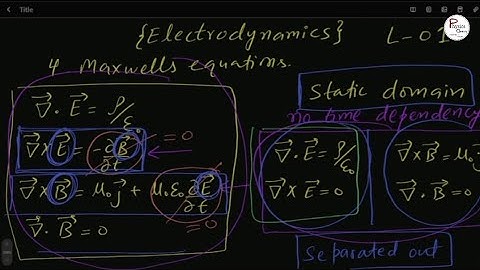 Title
{Electrodynamics} L-01
Physics
4 Maxwells equations.
∇⃗ · E⃗ = ρ/ε₀
∇⃗ × E⃗ = -∂B⃗/∂t = 0
∇⃗ × B⃗ = μ₀ j⃗ + μ₀ ε₀ ∂E⃗/∂t = 0
∇⃗ · B⃗ = 0
Static domain
no time dependency
∇⃗ · E⃗ = ρ/ε₀
∇⃗ × E⃗ = 0
∇⃗ × B⃗ = μ₀ j
∇⃗ · B⃗ = 0
Separated out